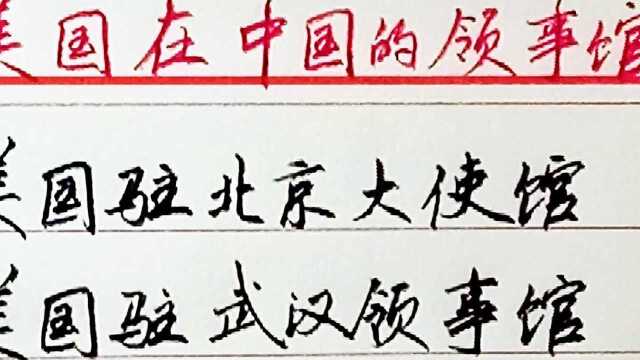 美国在中国的领事馆
美国驻北京大使馆
美国驻武汉领事馆